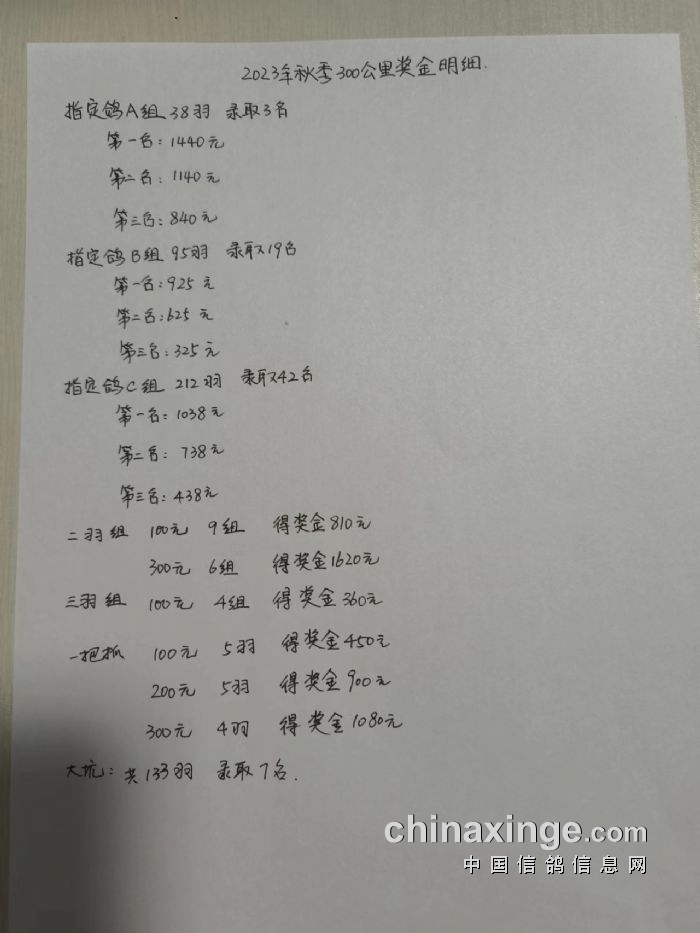 2023年秋季300公里奖金明细.
指定鸽A组 38羽 录取3名
第一名：1440元
第二名：1140元
第三名：840元
指定鸽B组 95羽 录取19名
第一名：925元
第二名：625元
第三名：325元
指定鸽C组 212羽 录取42名
第一名：1038元
第二名：738元
第三名：438元
二羽组 100元 9组 得奖金810元
300元 6组 得奖金1620元
三羽组 100元 4组 得奖金360元
一把抓 100元 5羽 得奖金450元
200元 5羽 得奖金900元
300元 4羽 得奖金1080元
大坑：共133羽 录取7名.
chinaxinge.com
中国信鸽信息网